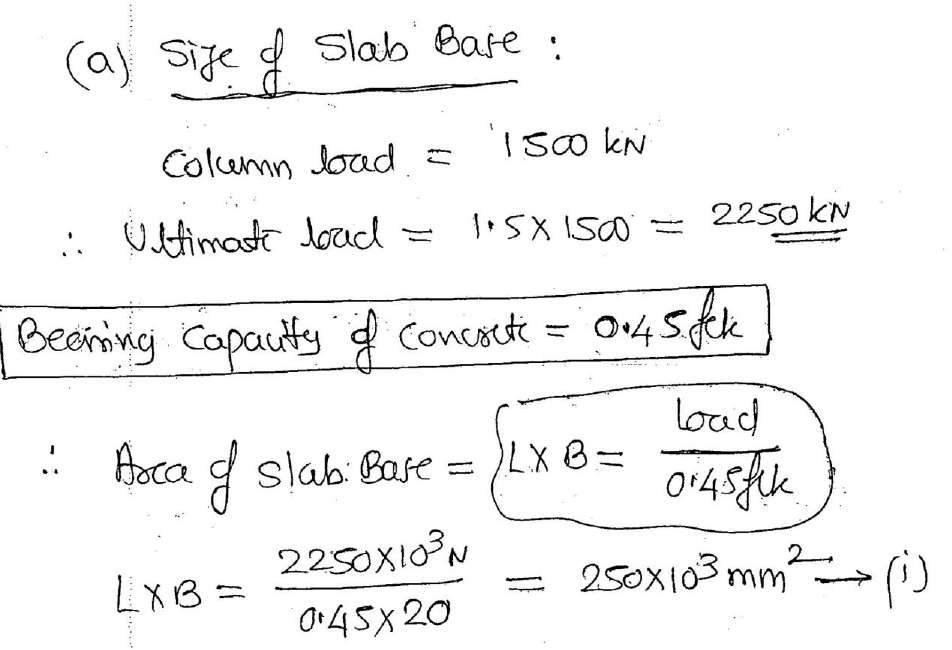 (a) Size of Slab Base :
Column load = 1500 kN
∴ Ultimate load = 1.5 X 1500 = 2250 kN
Beering Capacity of Concrete = 0.45 fck
∴ Area of Slab Base = L X B = load / 0.45 fck
L X B = 2250X10³ N / 0.45 X 20 = 250X10³ mm² → (i)